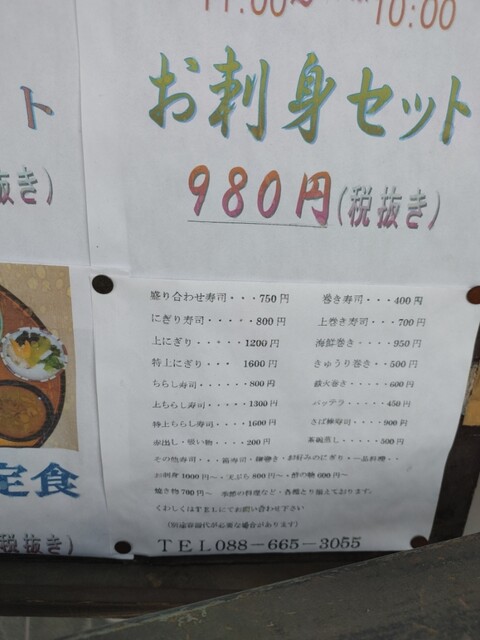 11:00 10:00
お刺身セット
980円(税抜き)
ト
抜き)
定食
税抜き)
盛り合わせ寿司・・・750円
にぎり寿司・・・・・800円
上にぎり・・・・・1200円
特上にぎり・・・・1600円
ちらし寿司・・・・・・800円
上ちらし寿司・・・・1300円
特上ちらし寿司・・・・1600円
赤出し・吸い物・・・・200円
巻き寿司・・・400円
上巻き寿司・・・700円
海鮮巻き・・・・950円
きゅうり巻き・・500円
鉄火巻き・・・・600円
バッテラ・・・・450円
さば棒寿司・・・900円
茶碗蒸し・・・・500円
その他寿司・・・箱寿司・棒巻き・お好みのにぎり・一品料理・・
お刺身1000円〜・天ぷら800円〜・酢の物600円〜
焼き物700円〜 季節の料理など・各種とり揃えております。
くわしくはTELにてお問い合わせ下さい
(別途容器代が必要な場合があります)
TEL088-665-3055